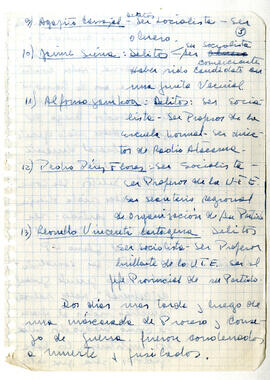 delito
9) Agapito Carvajal - Ser socialista - Ser
obrero.
5
10) Jaime Sierra: Delitos Ser socialista
Ser
comerciante
haber sido candidato en
una Junta Vecinal
11) Alfonso : Delitos: Ser Socia-
lista - Ser Profesor de la
Escuela Normal - Ser direc-
tor de Radio Atacama -
12) Pedro Pérez Flores - Ser Socialista
Ser Profesor de la U.T.E
Ser secretario regional
de Organización de su Partido
13) Leonello Vincenti Cartagena Delitos
Ser socialista - Ser Profesor
brillante de la U.T.E. Ser el
jefe Provincial de su Partido.
Dos días mas tarde y luego de
una máscarada de Proceso y Conse-
jo de Guerra fueron condenados
a muerte y fusilados.